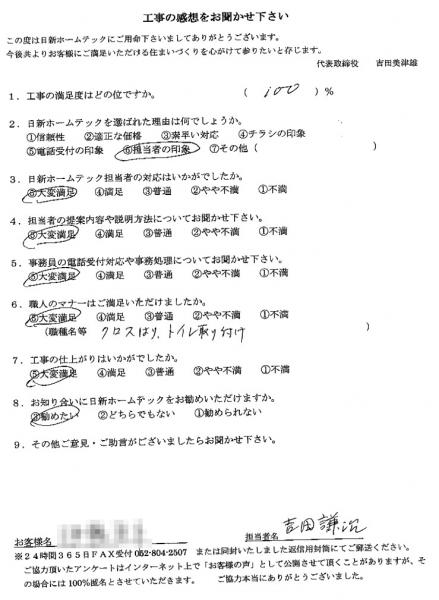 工事の感想をお聞かせ下さい
この度は日新ホームテックにご用命下さいましてありがとうございます。
今後共よりお客様にご満足いただける住まいづくりを心がけて参りたいと存じます。
代表取締役 吉田美津雄
1．工事の満足度はどの位ですか。 （ 100 ）%
2．日新ホームテックを選ばれた理由は何でしょうか。
①信頼性 ②適正な価格 ③素早い対応 ④チラシの印象
⑤電話受付の印象 ⑥担当者の印象 ⑦その他（ ）
3．日新ホームテック担当者の対応はいかがでしたか。
⑤大変満足 ④満足 ③普通 ②やや不満 ①不満
4．担当者の提案内容や説明方法についてお聞かせ下さい。
⑤大変満足 ④満足 ③普通 ②やや不満 ①不満
5．事務員の電話受付対応や事務処理についてお聞かせ下さい。
⑤大変満足 ④満足 ③普通 ②やや不満 ①不満
6．職人のマナーはご満足いただけましたか。
⑤大変満足 ④満足 ③普通 ②やや不満 ①不満
（職種名等 クロスはり、トイレ取り付け ）
7．工事の仕上がりはいかがでしたか。
⑤大変満足 ④満足 ③普通 ②やや不満 ①不満
8．お知り合いに日新ホームテックをお勧めいただけますか。
③勧めたい ②どちらでもない ①勧められない
9．その他ご意見・ご助言がございましたらお聞かせ下さい。
お客様名 担当者名 吉田謙治
※24時間365日FAX受付 052-804-2507 または同封いたしました返信用封筒にてご郵送ください。
ご協力頂いたアンケートはインターネット上で「お客様の声」として公開させて頂くことがありますが、そ
の場合には100%匿名とさせていただきます。 ご協力本当にありがとうございました。